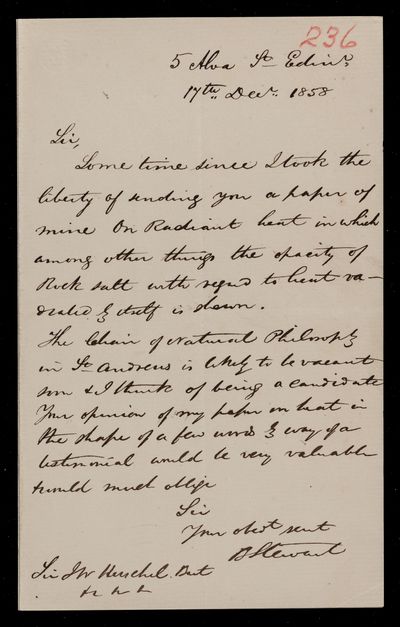 236
5 Alva St Edinr
17th Decr. 1858
Sir,
Some time since I took the
liberty of sending you a paper of
mine On Radiant heat in which
among other things the opacity of
Rock salt with regard to heat ra-
diated by itself is shewn.
The Chair of Natural Philosophy
in St Andrews is likely to be vacant
soon & I think of being a candidate
Your opinion of my paper on heat in
the shape of a few words by way of a
testimonial would be very valuable
& would much oblige
Sir
Your obedt servt
B Stewart
Sir J W Herschel Bart
&c &c &c